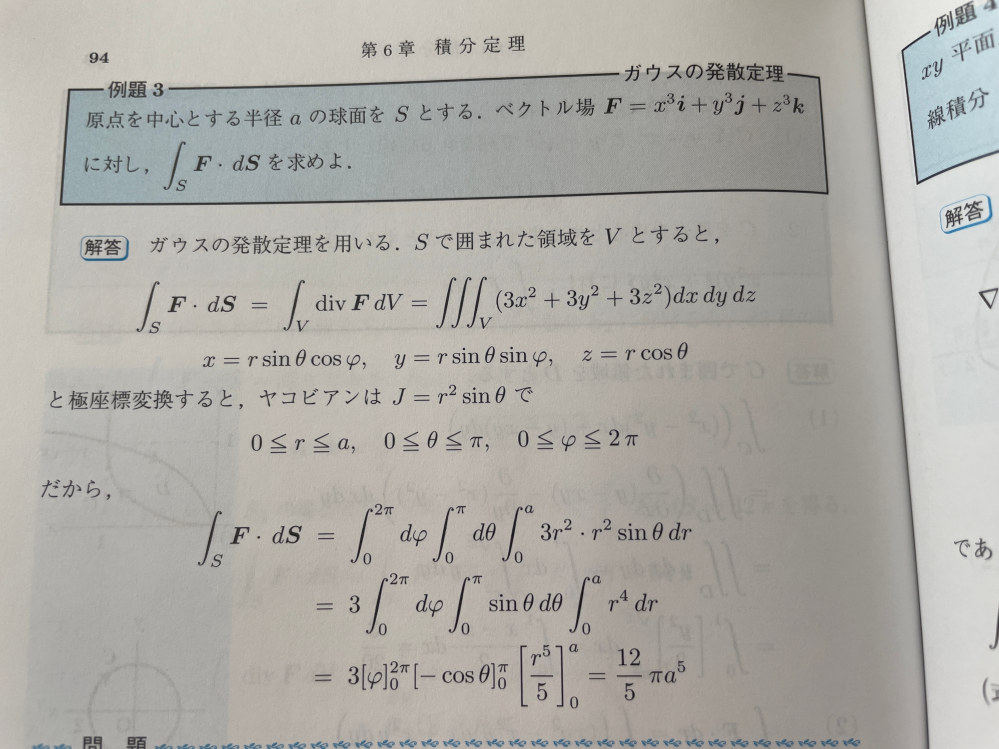 94
第6章 積分定理
例題3
ガウスの発散定理
原点を中心とする半径 a の球面を S とする．ベクトル場 F = x³i + y³j + z³k
に対し，∫_S F・dS を求めよ．
解答 ガウスの発散定理を用いる．S で囲まれた領域を V とすると，
∫_S F・dS = ∫_V div F dV = ∭_V (3x² + 3y² + 3z²)dx dy dz
x = r sin θ cos φ, y = r sin θ sin φ, z = r cos θ
と極座標変換すると，ヤコビアンは J = r² sin θ で
0 ≦ r ≦ a, 0 ≦ θ ≦ π, 0 ≦ φ ≦ 2π
だから，
∫_S F・dS = ∫_0^{2π} dφ ∫_0^π dθ ∫_0^a 3r²・r² sin θ dr
= 3 ∫_0^{2π} dφ ∫_0^π sin θ dθ ∫_0^a r⁴ dr
= 3[φ]_0^{2π} [− cos θ]_0^π [r⁵/5]_0^a = 12/5 πa⁵
問 題
例題4
xy 平面
線積分
解答
▽
であ